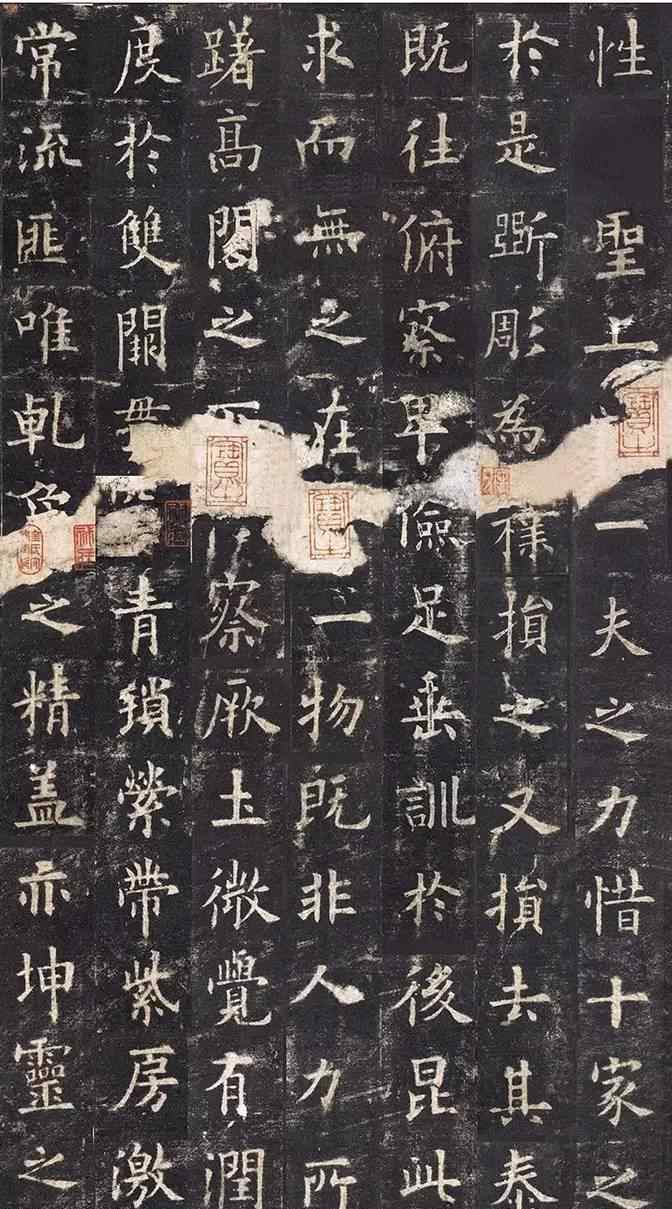 性聖上一夫之力惜十家之
於是斵彫為樸損之又損去其泰
既往俯察卑儉足垂訓於後昆此
求而無之在一物既非人力所
躇高閣之察厥土微覺有潤
度於雙闕青瑣縈帶紫房激
常流匪唯乹象之精盖亦坤靈之